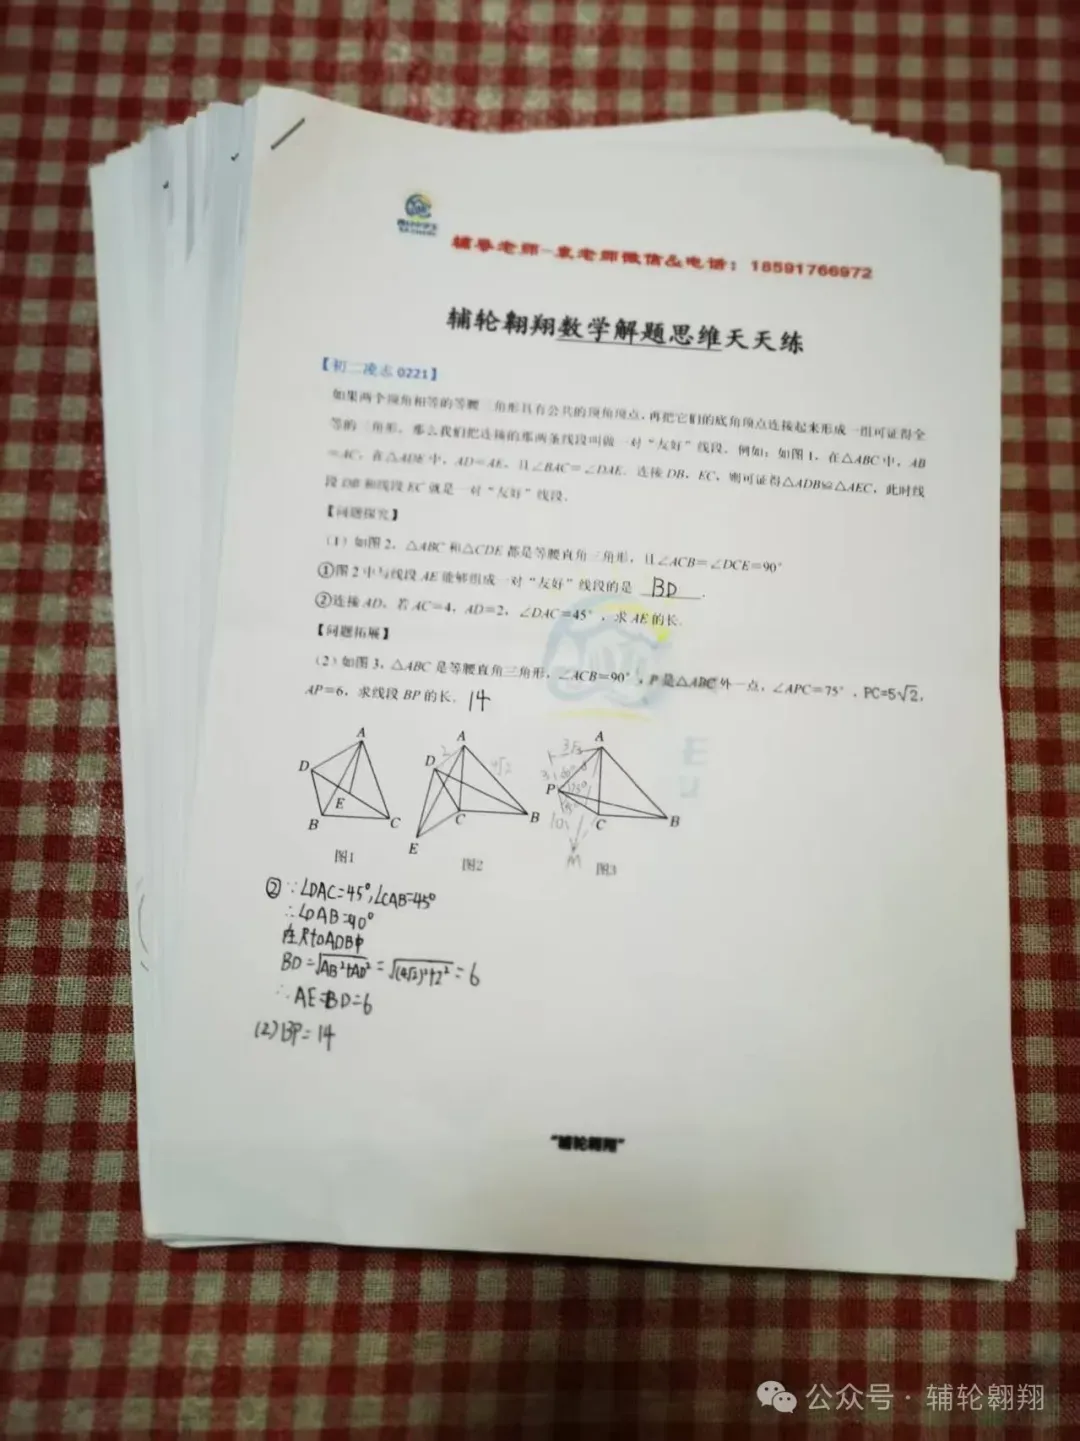 辅导老师-袁老师微信&电话：18591766972
辅轮翱翔数学解题思维天天练
【初二凌志0221】
如果两个顶角相等的等腰三角形具有公共的顶角顶点，再把它们的底角顶点连接起来形成一组可证得全
等的三角形，那么我们把连接的那两条线段叫做一对“友好”线段．例如：如图1，在△ABC中，AB
=AC，在△ADE中，AD=AE，且∠BAC=∠DAE．连接DB，EC，则可证得△ADB≌△AEC，此时线
段DB和线段EC就是一对“友好”线段．
【问题探究】
（1）如图2，△ABC和△CDE都是等腰直角三角形，且∠ACB=∠DCE=90°
①图2中与线段AE能够组成一对“友好”线段的是 BD ．
②连接AD，若AC=4，AD=2，∠DAC=45°，求AE的长．
【问题拓展】
（2）如图3，△ABC是等腰直角三角形，∠ACB=90°，P是△ABC外一点，∠APC=75°，PC=5√2，
AP=6，求线段BP的长． 14
A
D
E
B
C
图1
A
D
2
4√2
C
B
E
图2
A
P
C
B
M
图3
② ∵∠DAC=45°,∠CAB=45°
∴∠DAB=90°
在Rt△ADB中
BD=√AB²+AD²=√(4√2)²+2²=6
∴AE=BD=6
(2)BP=14
“辅轮翱翔”
公众号·辅轮翱翔